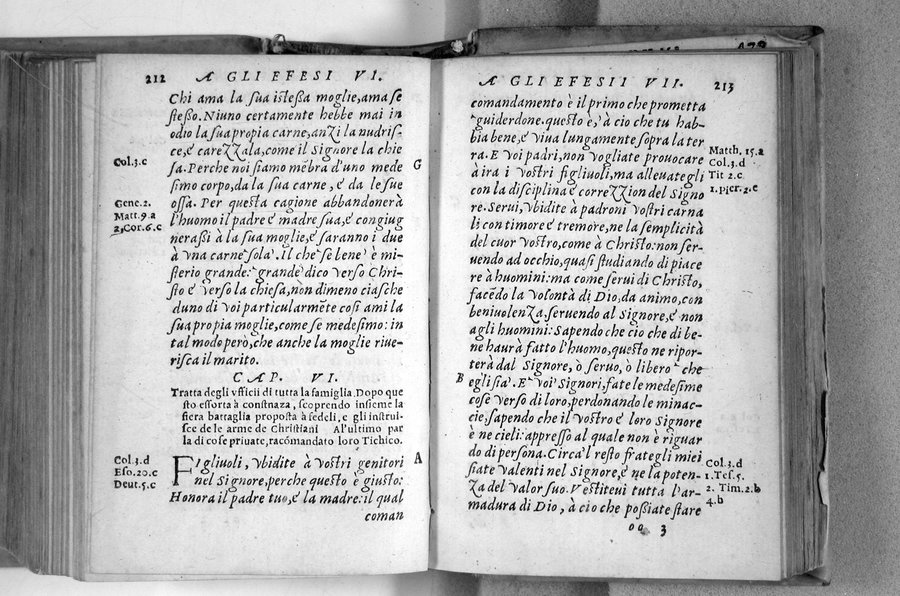 212 A GLI EFESI VI.
Chi ama la sua isteßa moglie, ama se
steßo. Niuno certamente hebbe mai in
odio la sua propia carne, anzi la nudris-
ce, e carezzala, come il Signore la chie
sa. Perche noi siamo mẽbra d'uno mede
simo corpo, da la sua carne, e da le sue
ossa. Per questa cagione abbandonerà
l'huomo il padre e madre sua, e congiug
nerassi à la sua moglie, e saranno i due
à vna carne sola. Il che se bene è mi-
sterio grande: grande dico verso Chri-
sto e verso la chiesa, nõ dimeno ciasche
duno di voi particularmẽte cosi ami la
sua propia moglie, come se medesimo: in
tal modo però, che anche la moglie riue-
risca il marito.
CAP. VI.
Tratta degli vfficii di tutta la famiglia. Dopo que
sto essorta à constnaza, scoprendo insieme la
fiera battaglia proposta à fedeli, e gli instrui-
sce de le arme de Christiani Al'ultimo par
la di cose priuate, racõmandato loro Tichico.
FIgliuoli, vbidite à vostri genitori
nel Signore, perche questo è giusto:
Honora il padre tuo, e la madre: il qual
coman
Col.3.c
Gene.2.
Matt.9.a
2,Cor.6.c
Col.3.d
Eso.20.c
Deut.5.c
G
A
A GLI EFESII VII. 213
comandamento è il primo che prometta
guiderdone. questo è, à cio che tu hab-
bia bene, e viua lungamente sopra la ter
ra. E voi padri, non vogliate prouocare
à ira i vostri figliuoli, ma alleuategli
con la disciplina e correzzion del Signo
re. Serui, vbidite à padroni vostri carna
li con timore e tremore, ne la semplicità
del cuor vostro, come à Christo: non ser-
uendo ad occhio, quasi studiando di piace
re à huomini: ma come serui di Christo,
facẽdo la volontà di Dio, da animo, con
beniuolenza. seruendo al Signore, e non
agli huomini: Sapendo che cio che di be-
ne haurà fatto l'huomo, questo ne ripor-
terà dal Signore, ò seruo, ò libero che
egli sia. E voi Signori, fate le medesime
cose verso di loro, perdonando le minac-
cie, sapendo che il vostro e loro Signore
è ne cieli: appresso al quale non è riguar
do di persona. Circa'l resto frategli miei
siate valenti nel Signore, e ne la poten-
za del valor suo. Vestiteui tutta l'ar-
madura di Dio, à cio che poßiate stare
oo 3
Matth, 15.a
Col.3.d
Tit 2.c
1.pier.2.c
B
Col.3.d
1.Tes.5.
2. Tim.2.b
4.b